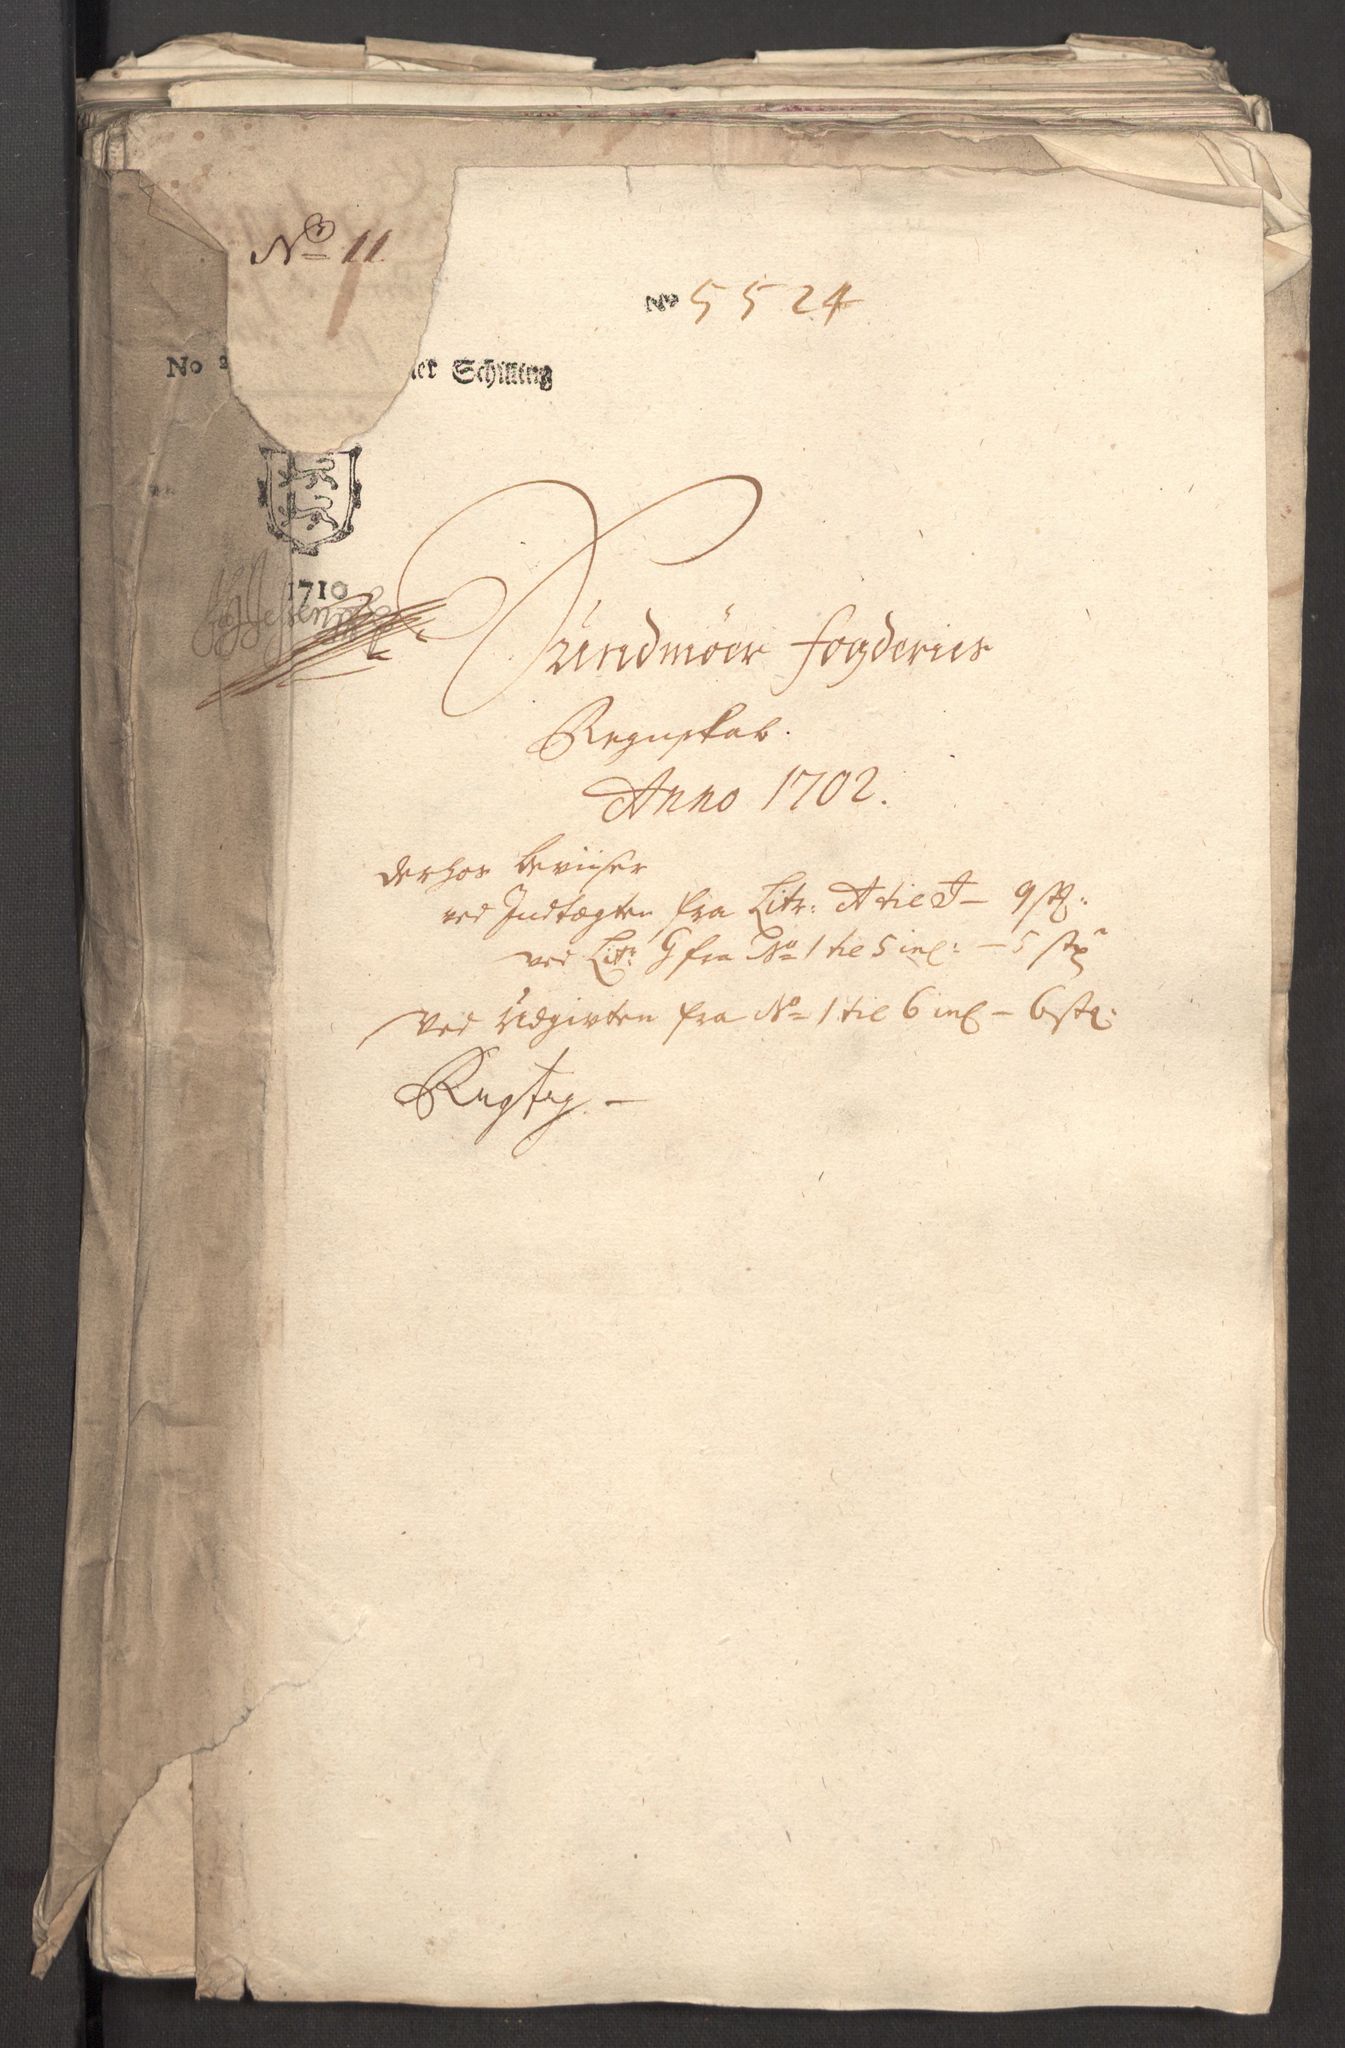 No 11
No 5524
No 2 ler Schilling
1710
Sundmöer fogderies
Regnskab.
Anno 1702.
derhos beviiser
ved Indtægten fra Litr: A til J - 9 stk:
ved Litr: G fra No 1 til 5 incl: - 5 stk
Ved Udgivten fra No 1 til 6 incl - 6 stk: